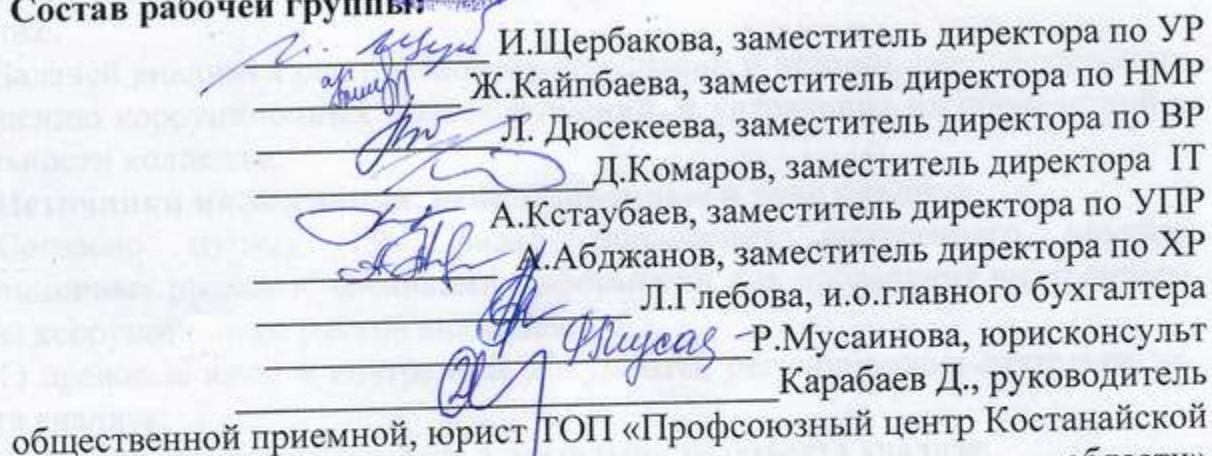 Состав рабочей группы:
И.Щербакова, заместитель директора по УР
Ж.Кайпбаева, заместитель директора по НМР
Л. Дюсекеева, заместитель директора по ВР
Д.Комаров, заместитель директора IT
А.Кстаубаев, заместитель директора по УПР
А.Абджанов, заместитель директора по ХР
Л.Глебова, и.о.главного бухгалтера
Р.Мусаинова, юрисконсульт
Карабаев Д., руководитель
общественной приемной, юрист ТОП «Профсоюзный центр Костанайской
области»